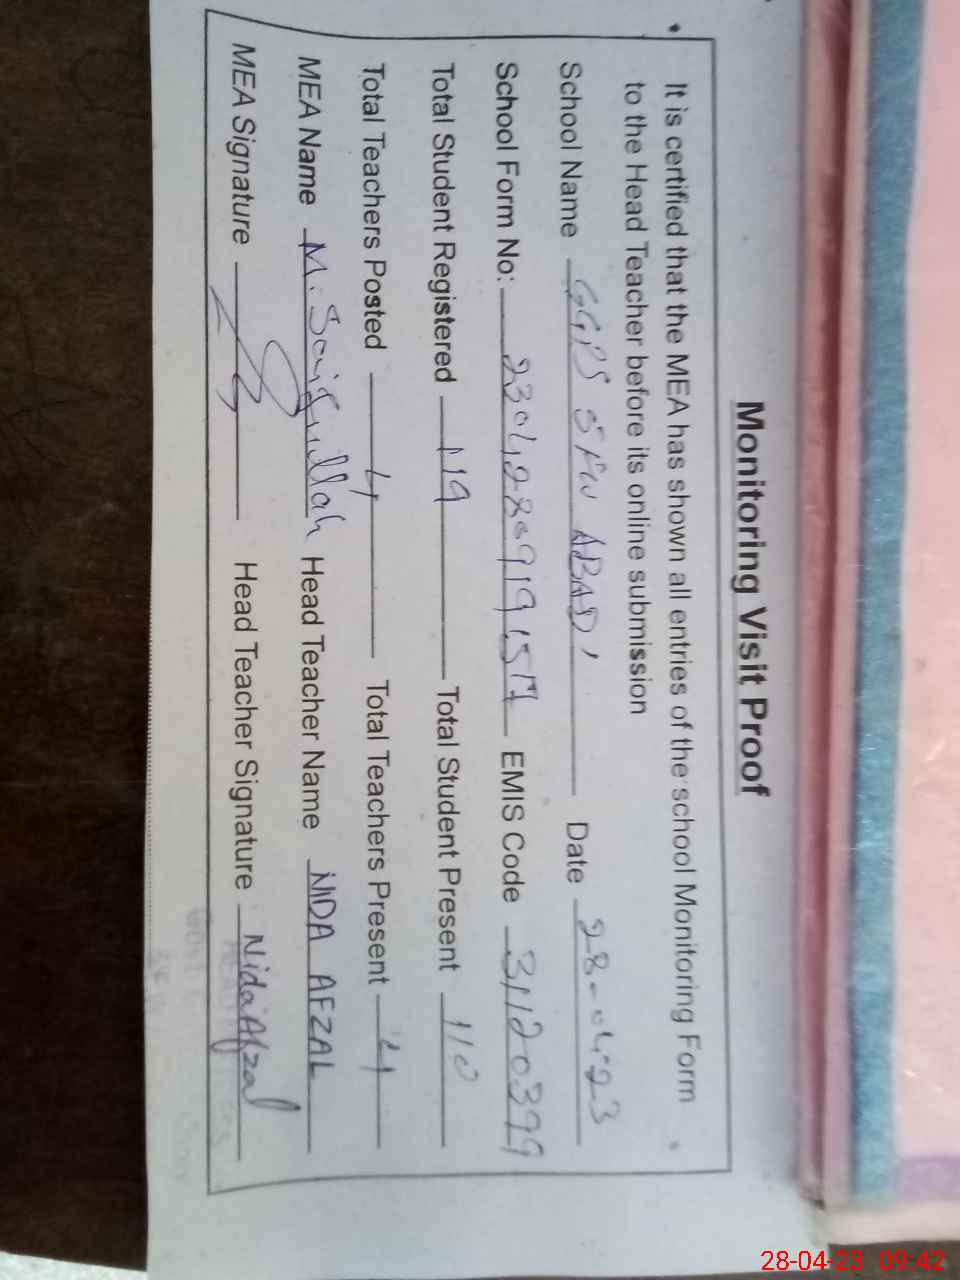 Monitoring Visit Proof
It is certified that the MEA has shown all entries of the school Monitoring Form
to the Head Teacher before its online submission
School Name GGPS ABAD Date 28-04-23
School Form No: EMIS Code 31120399
Total Student Registered 119 Total Student Present 110
Total Teachers Posted 4 Total Teachers Present 4
MEA Name M. Head Teacher Name NIDA AFZAL
MEA Signature Head Teacher Signature Nida Afzal
28-04-23 09:42